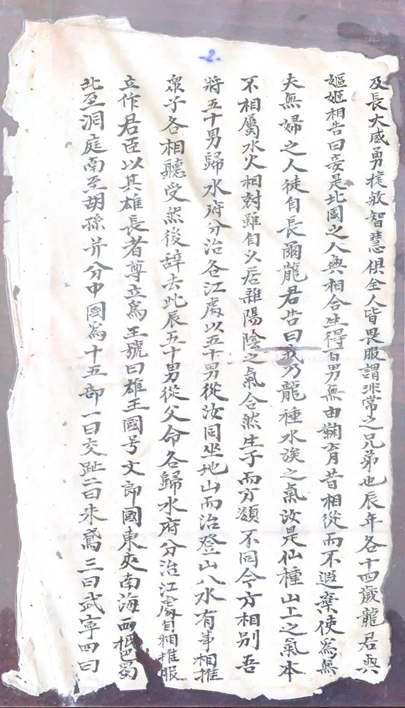 -2-
及長大咸勇捷敏智慧俱全人皆畏服謂非常之兄弟也辰年各十四歲龍君與
嫗姬相告曰妾是北國之人與相合生得百男無由鞠育昔相從而不遐棄使為無
夫無婦之人徒自長爾龍君告曰我乃龍種水族之氣汝是仙種山上之氣本
不相屬水火相尅雖自久居雖陽陰之氣合然生子而方類不同今方相別吾
將五十男歸水府分治各江處以五十男從汝同坐地山而治登山入水有事相推
眾子各相聽受然後辞去此辰五十男從父命各歸水府分治江處自相推服
立作君臣以其雄長者尊立為王號曰雄王國号文郎國東夾南海西抵巴蜀
北至洞庭南至胡孫并分中國為十五部一曰交趾二曰朱鳶三曰武寧四曰